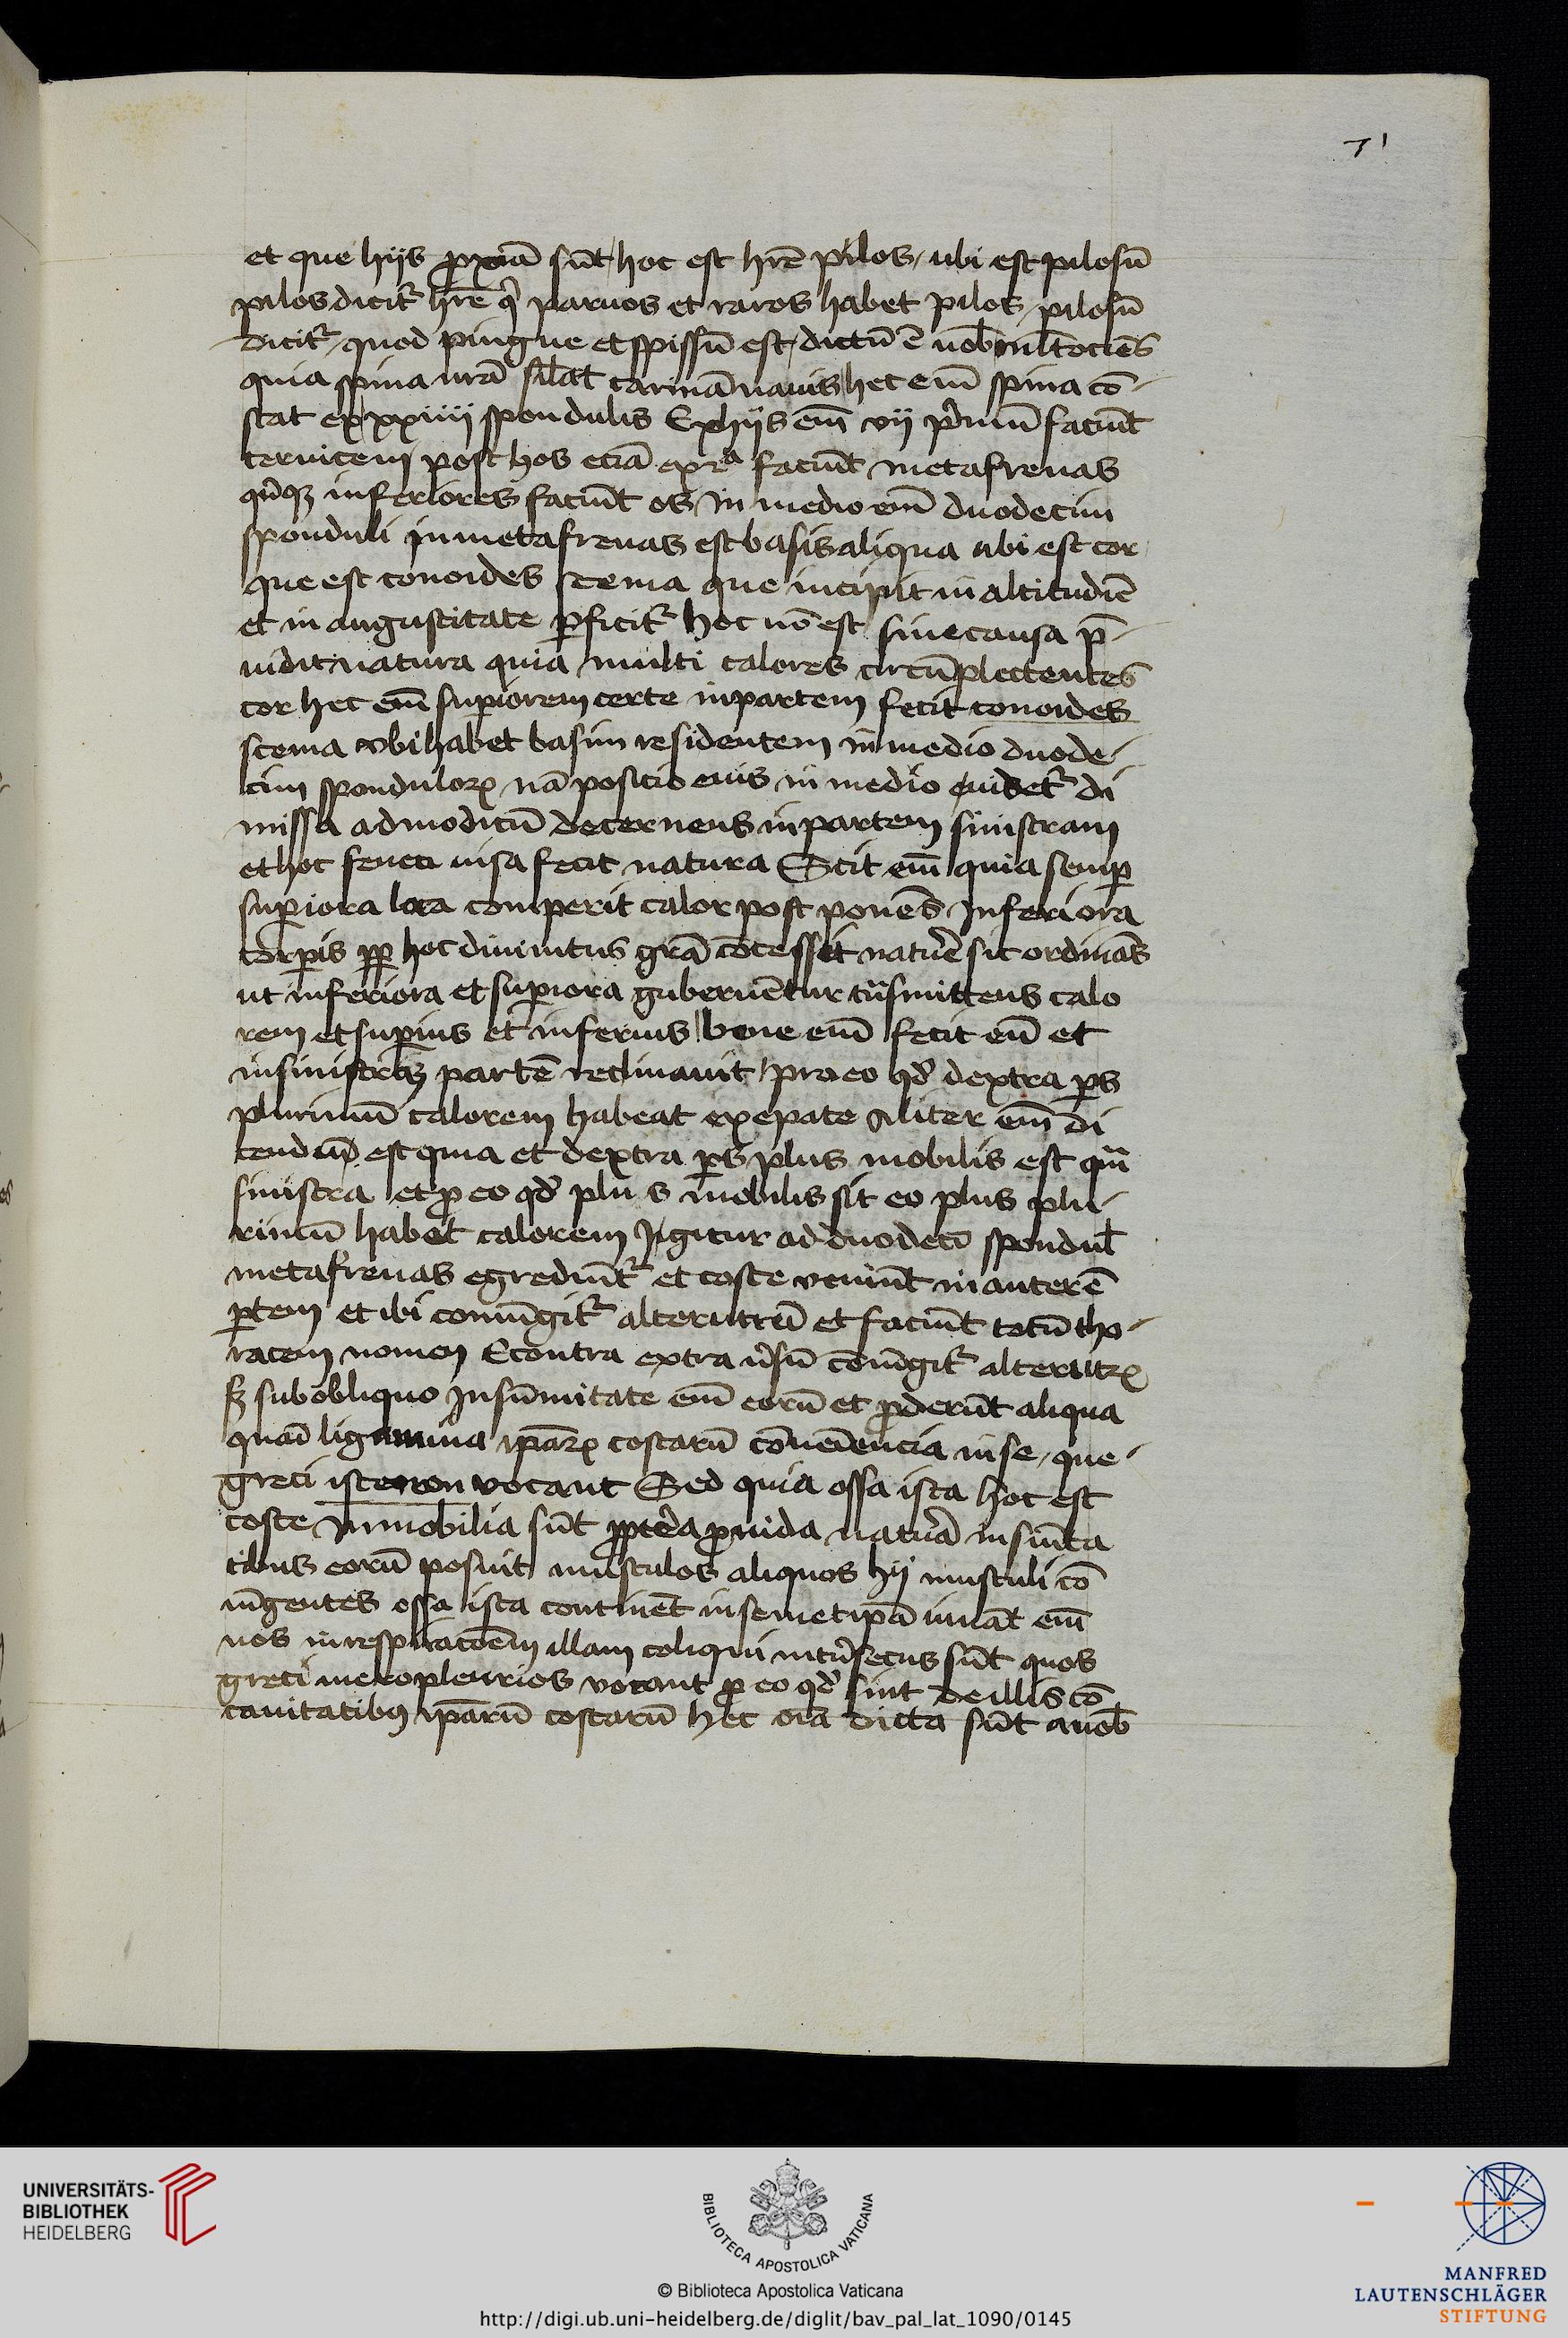 71
et que hijs ꝓxiā sūt hoc est hr̄e pilos, ubi est pilosū
pilos dicitr̄ hr̄e qͥ paruos et raros habet pilos, pilosū
dicitr̄, quod pingue et spissū est, dictū ē nob̄ multociēs
quia spina nr̄a sil̄at carinā nauis hec em̄ spina cō-
stat ex xxiiii spondulis Ex hijs em̄ vij pͥmum faciūt
ceruicem post hos eciā faciūt metafrenas
qͥnqꝫ inferiores faciūt os, in medio em̄ duodecim
sponduli in metafrenas est basis aliqua ubi est cor
que est conoides scema que incipit in altitudiē
et in angustitate ꝑficitr̄ hoc nō est sine causa p̄-
uidit natura quia multi calores circūplectentes
cor hec em̄ suꝑiorem certe in partem fecit conoides
scema vbi habet basim residentem in medio duode-
cim spondulorꝝ, nā positio eius in medio euidetr̄ di
missa ad modicū decernens in partem sinistram
et hoc fecit natura Scit em̄ quia semꝑ
suꝑiora loca comperit calor post ponēs inferiora
corꝑis ꝓꝑ hoc diuinitus gr̄a cōcessit nature sic ordinās
ut inferiora et suꝑiora gubernētur trāsmittens calo
rem et suꝑius et inferius bene em̄ fecit eū et
in sinistrā partē reclinauit pro eo qd̄ dextra ꝑs
plurimū calorem habeat ex epate Aliter em̄ di
cendū est quia et dextra ꝑs plus mobilis est quā
sinistra et ꝓ eo qd̄ plus mobilis sit eo plus plu-
rimū habet calorem Igitur ad duodecī spondul̄
metafrenas egrediūtr̄ et coste veniūt in anterē
ꝑtem et ibi coniūgitr̄ alterutrū et faciūt totū tho-
racem nomen Econtra extra ūsū cōiūgitr̄ alterutrꝝ
sꝫ sub obliquo In sūmitate em̄ eorū et ꝓderūt aliqua
quasi ligamina ipāꝝ costarū cōueniencia in se, que-
greci isteron vocant Sed quia ossa ista hoc est
coste Immobilia sūt ꝓpterea ꝓuida natura in siūcta
tibus eorū posuit musculos aliquos hij musculi cō
iūgentes ossa ista continēt in semet ipā iuuāt em̄
nos in respiracōem illam intrīsecus sūt quos
greci mesopleurios vocant ꝓ eo qd̄ sint de illis cō
cauitatibꝰ ipārū costarū hec oīa dicta sūt a nob̄
UNIVERSITÄTS-
BIBLIOTHEK
HEIDELBERG
BIBLIOTECA APOSTOLICA VATICANA
© Biblioteca Apostolica Vaticana
http://digi.ub.uni-heidelberg.de/diglit/bav_pal_lat_1090/0145
MANFRED
LAUTENSCHLÄGER
STIFTUNG